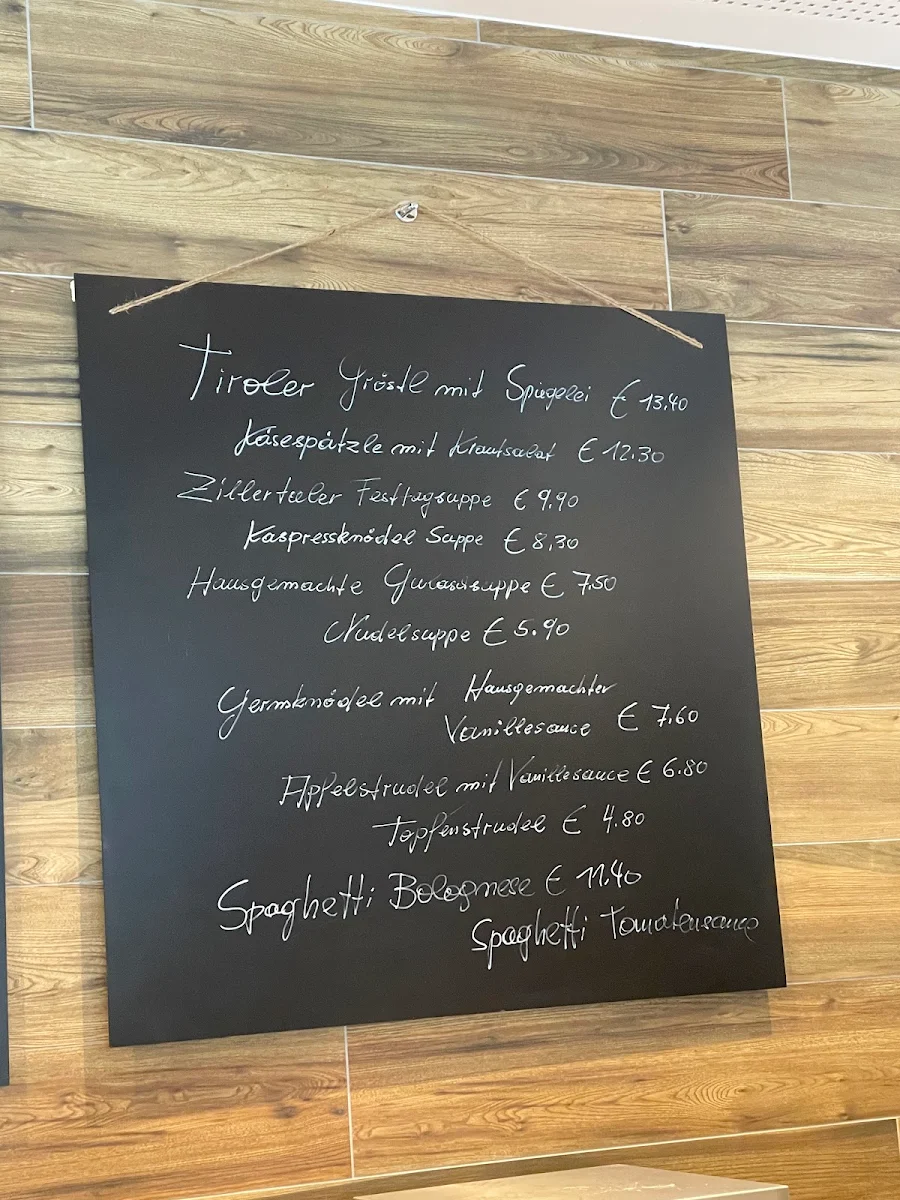 Tiroler Gröstl mit Spiegelei € 13.40
Käsespätzle mit Krautsalat € 12.30
Zillertaler Festtagsuppe € 9.90
Kaspressknödel Suppe € 8,30
Hausgemachte Gulaschsuppe € 7.50
Nudelsuppe € 5.90
Germknödel mit Hausgemachter
Vanillesauce € 7.60
Apfelstrudel mit Vanillesauce € 6.80
Topfenstrudel € 4.80
Spaghetti Bolognese € 11.40
Spaghetti Tomatensauce